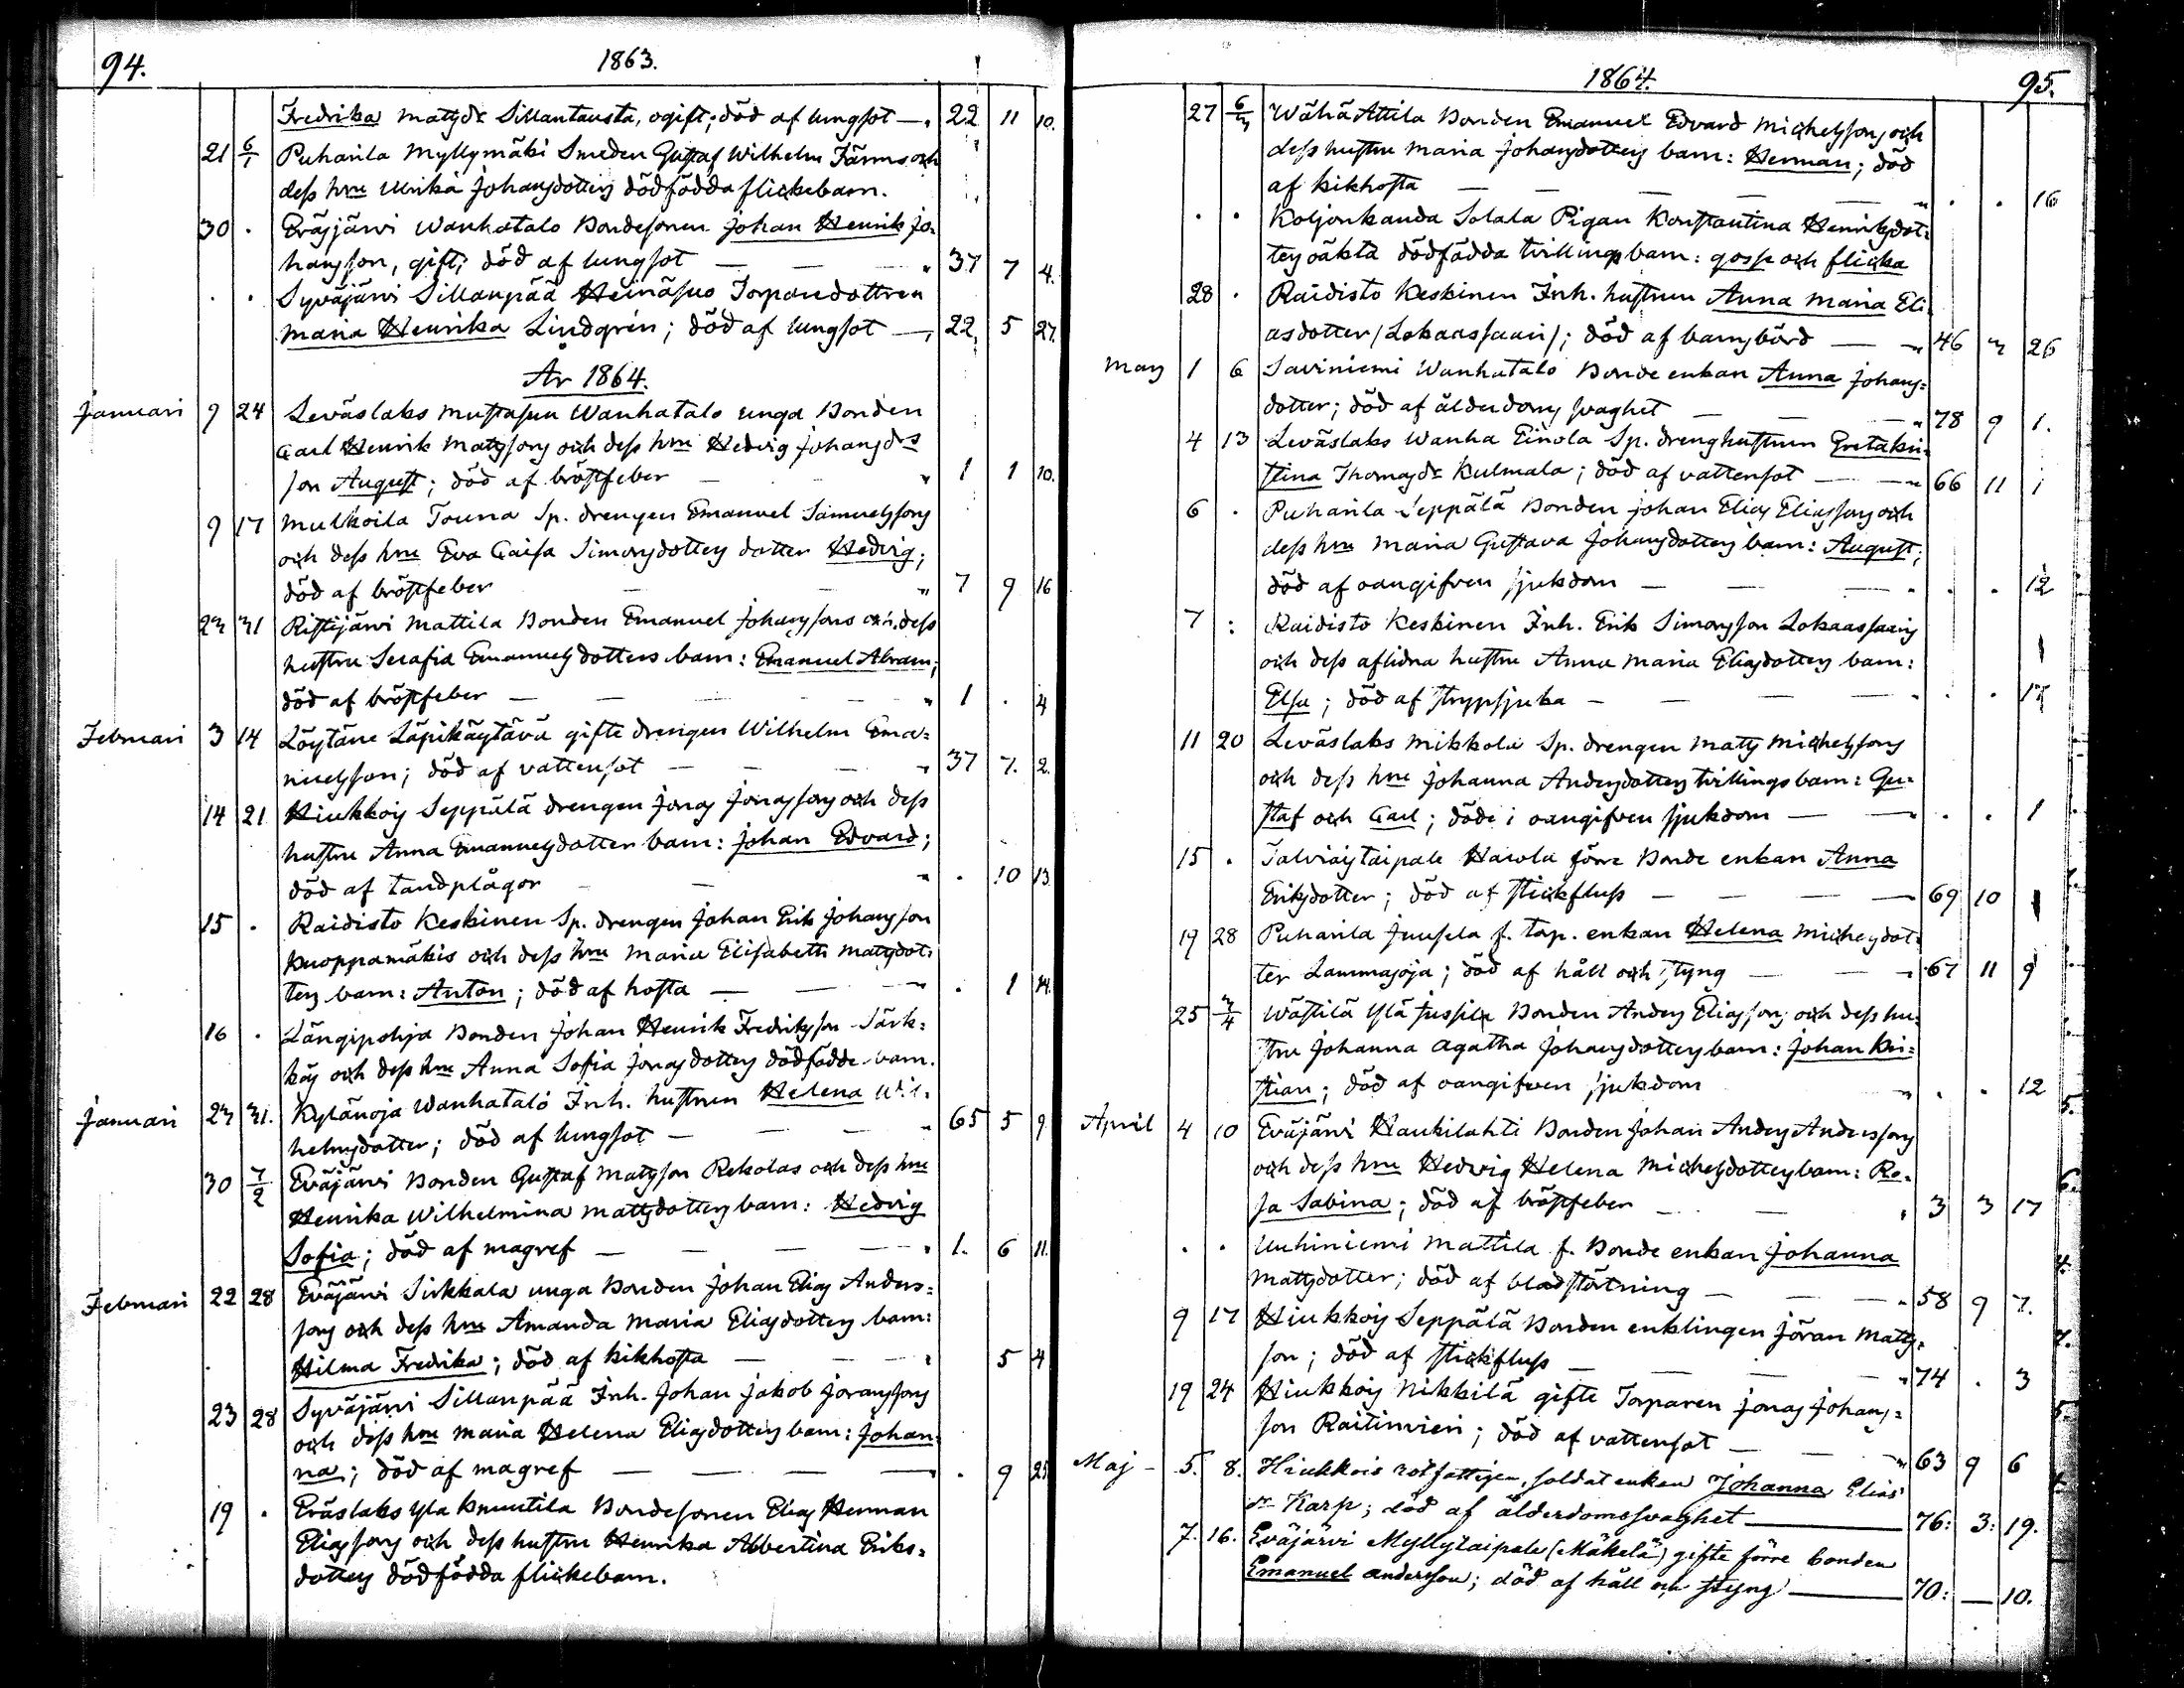 94.
1863.
Fredrika Matsdr Sillantausta, ogift; död af lungsot —. 22 11 10.
21 6/1 Puharila Myllymäki Smeden Gustaf Wilhelm Färms och
dess hru Ulrika Johansdotters dödfödda flickebarn.
30 . Eräsjärvi Wanhatalo Bondesonen Johan Henrik Jo-
hansson, gift; död af lungsot — — " 37 7 4.
. . Syväjärvi Sillanpää Heinäsuo Torparedottren
Maria Henrika Lindgrén; död af lungsot —, 22, 5 27.
År 1864.
Januari 9 24 Leväslaks Mustasuu Wanhatalo unga Bonden
Carl Henrik Matssons och dess hru Hedvig Johansdrs
son August; död af bröstfeber — - " 1 1 10.
9 17 Mulkoila Touna Sp. drengen Emanuel Samuelssons
och dess hru Eva Caisa Simonsdotters dotter Hedvig;
död af bröstfeber — — " 7 9 16
23 31 Ristijärvi Mattila Bonden Emanuel Johanssons och dess
hustru Serafia Emanuelsdotters barn: Emanuel Abram;
död af bröstfeber — — — " 1 . 4
Februari 3 14 Löytäne Läpikäytävä gifte drengen Wilhelm Ema-
nuelsson; död af vattensot — — — " 37 7. 2.
14 21 Hiukkois Seppälä drengen Jonas Jonassons och dess
hustru Anna Emanuelsdotters barn: Johan Edvard;
död af tandplågor — — " . 10 13
15 . Raidisto Keskinen Sp. drengen Johan Erik Johansson
Kuoppamäkis och dess hru Maria Elisabeth Matsdot-
ters barn: Anton; död af hosta — — " . 1 14.
16 . Längipohja Bonden Johan Henrik Fredriksson Särk-
käs och dess hru Anna Sofia Jonasdotters dödfödde barn.
Januari 23 31. Kylänoja Wanhatalo Inh. hustrun Helena Wil-
helmsdotter; död af lungsot — — — " 65 5 9
30 7/2 Eväjärvi Bonden Gustaf Matsson Rekolas och dess hru
Henrika Wilhelmina Mattsdotters barn: Hedvig
Sofia; död af magref — — — — " 1. 6 11.
Februari 22 28 Eväjärvi Sirkkala unga Bonden Johan Elias Anders-
sons och dess hru Amanda Maria Eliasdotters barn:
Hilma Fredrika; död af kikhosta — — — " 5 4
23 28 Syväjärvi Sillanpää Inh. Johan Jakob Joranssons
och dess hru Maria Helena Eliasdotters barn: Johan-
na; död af magref — — — — . 9 25
19 . Eräslaks Yla Knuutila Bondesonen Elias Herman
Eliassons och dess hustru Henrika Albertina Eriks-
dotters dödfödda flickebarn.
1864.
95.
27 6/3 Wähä Attila Bonden Emanuel Edvard Michelssons och
dess hustru Maria Johansdotters barn: Herman; död
af kikhosta — — — — " . . 16
. . Koljonkanda Solala Pigan Konstantina Henriksdot-
ters oäkta dödfödda tvillings barn: gosse och flicka
28 . Raidisto Keskinen Inh. hustrun Anna Maria Eli-
asdotter (Lokaassaari); död af barnsbörd — — " 46 3 26
Mars 1 6 Saviniemi Wanhatalo Bonde enkan Anna Johans-
dotter; död af ålderdoms svaghet — — — " 78 9 1.
4 13 Leväslaks Wanha Einola Sp. drenghustrun Greta Kri-
stina Thomasdr Kulmala; död af vattensot — — " 66 11 1
6 . Puharila Seppälä Bonden Johan Elias Eliassons och
dess hru Maria Gustava Johansdotters barn: August;
död af oangifven sjukdom — — . . . 12
7 : Raidisto Keskinen Inh. Erik Simonsson Lokaassaaris
och dess aflidna hustru Anna Maria Eliasdotters barn:
Elsa; död af strypsjuka — — — — . . . 17
11 20 Leväslaks Mikkola Sp. drengen Mats Michelssons
och dess hru Johanna Andersdotters tvillings barn: Gu-
staf och Carl; döde i oangifven sjukdom — — . . 1
15 . Talviaistaipale Harola förre Bonde enkan Anna
Eriksdotter; död af stickfluss — — — — 69 10 1
19 28 Puharila Juusela f. tap. enkan Helena Michelsdot-
ter Lammasoja; död af håll och styng — — " 67 11 9
25 3/4 Wästilä Ylä Jussila Bonden Anders Eliassons och dess hu-
stru Johanna Agatha Johansdotters barn: Johan Kri-
stian; död af oangifven sjukdom " . . 12
April 4 10 Eväjärvi Haukilahti Bonden Johan Anders Anderssons
och dess hru Hedvig Helena Michelsdotters barn: Ro-
sa Sabina; död af bröstfeber — — , 3 3 17
. . Uuhiniemi Mattila f. Bonde enkan Johanna
Mattsdotter; död af blodstörtning — — — " 58 9 7.
9 17 Hiukkois Seppälä Bonden enklingen Jöran Matts-
son; död af stickfluss — — — — " 74 . 3
19 24 Hiukkois Nikkilä gifte Torparen Jonas Johans-
son Raitinvieri; död af vattensot — — — " 63 9 6
Maj — 5. 8. Hiukkois rotfattigen, soldatenkan Johanna Elias
dr Karp; död af ålderdomssvaghet — 76: 3: 19.
7. 16. Eväjärvi Myllytaipale (Mäkelä) gifte förre bonden
Emanuel Andersson; död af håll och styng — 70: — 10.